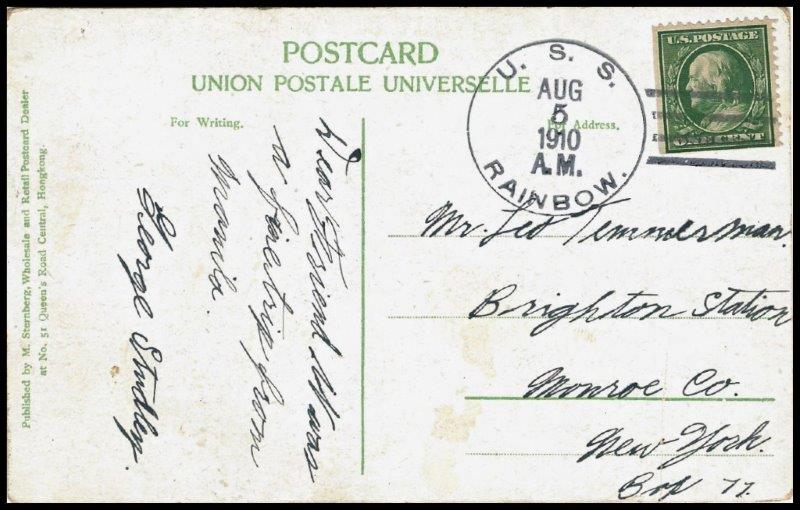 POSTCARD
UNION POSTALE UNIVERSELLE
For Writing.
For Address.
U.S. POSTAGE
ONE CENT
U. S. S.
AUG
5
1910
A.M.
RAINBOW.
Dear Friend. Was
a fine trip from
Manila.
George Studley.
Mr. Leo Temmerman
Brighton Station
Monroe Co.
New York.
Box 77.
Published by M. Sternberg, Wholesale and Retail Postcard Dealer
at No. 51 Queen's Road Central, Hongkong.